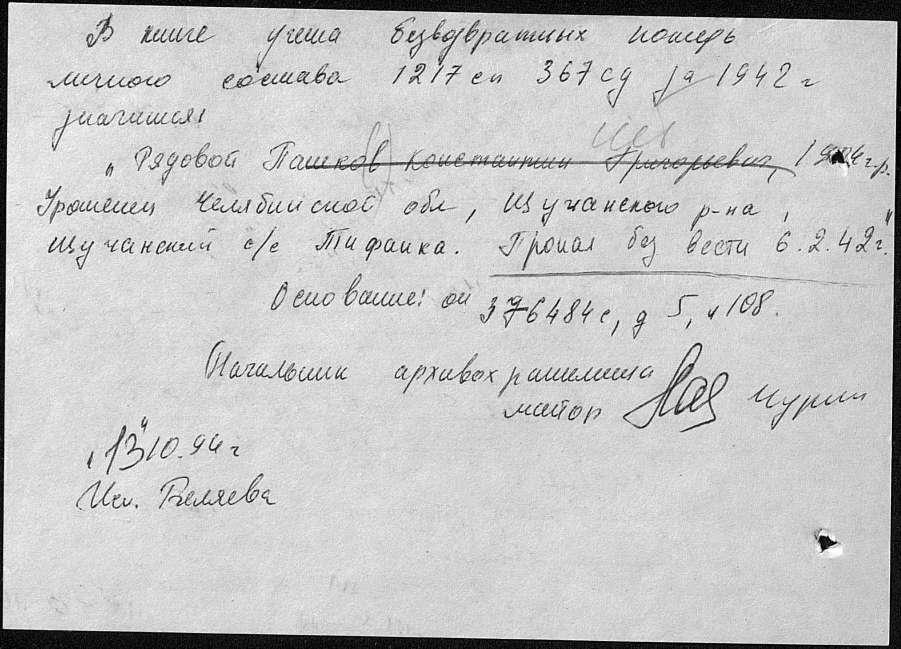 В книге учета безвозвратных потерь
личного состава 1217 сп 367 сд за 1942 г
значится:
„Рядовой Пашков Константин Григорьевич, 1904 г.р.
Уроженец Челябинской обл, Щучанского р-на,
Щучанский с/с Тифанка. Пропал без вести 6.2.42 г."
Основание: оп 376484с, д 5, л 108.
Начальник архивохранилища
майор
„13" 10.94 г
Исп. Беляева